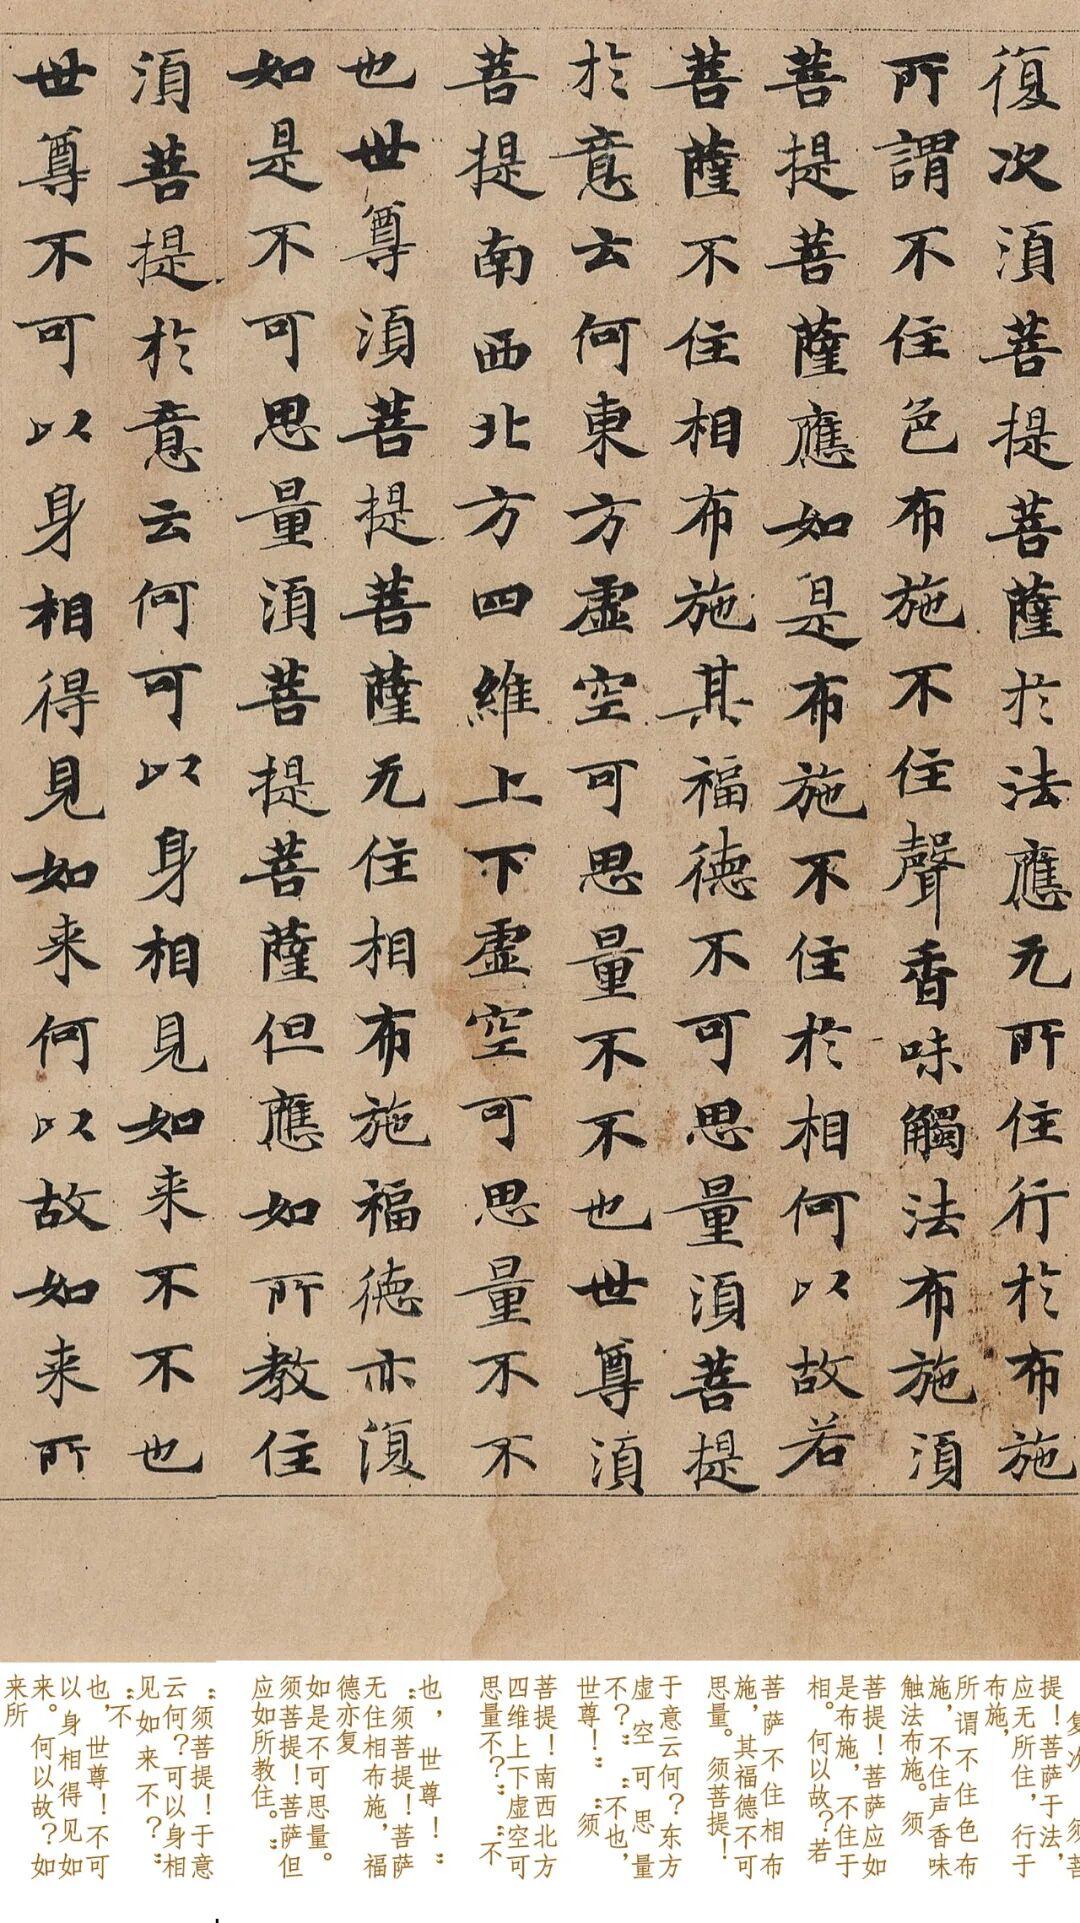 復次須菩提菩薩於法應无所住行於布施
所謂不住色布施不住聲香味觸法布施須
菩提菩薩應如是布施不住於相何以故若
菩薩不住相布施其福德不可思量須菩提
於意云何東方虛空可思量不不也世尊須
菩提南西北方四維上下虛空可思量不不
也世尊須菩提菩薩无住相布施福德亦復
如是不可思量須菩提菩薩但應如所教住
須菩提於意云何可以身相見如来不不也
世尊不可以身相得見如来何以故如来所
复次 须菩
提！菩萨于法，
应无所住，行于
布施，
所谓不住色布
施，不住声香味
触法布施。须
菩提！菩萨应如
是布施，不住于
相。何以故？若
菩萨不住相布
施，其福德不可
思量。须菩提！
于意云何？东方
虚空可思量
不？”“不也，
世尊！”“须
菩提！南西北方
四维上下虚空可
思量不？”“不
也，世尊！”
“须菩提！菩萨
无住相布施，福
德亦复
如是不可思量。
须菩提！菩萨但
应如所教住。”
“须菩提！于意
云何？可以身相
见如来不？”
“不
也，世尊！不可
以身相得见如
来。何以故？如
来所